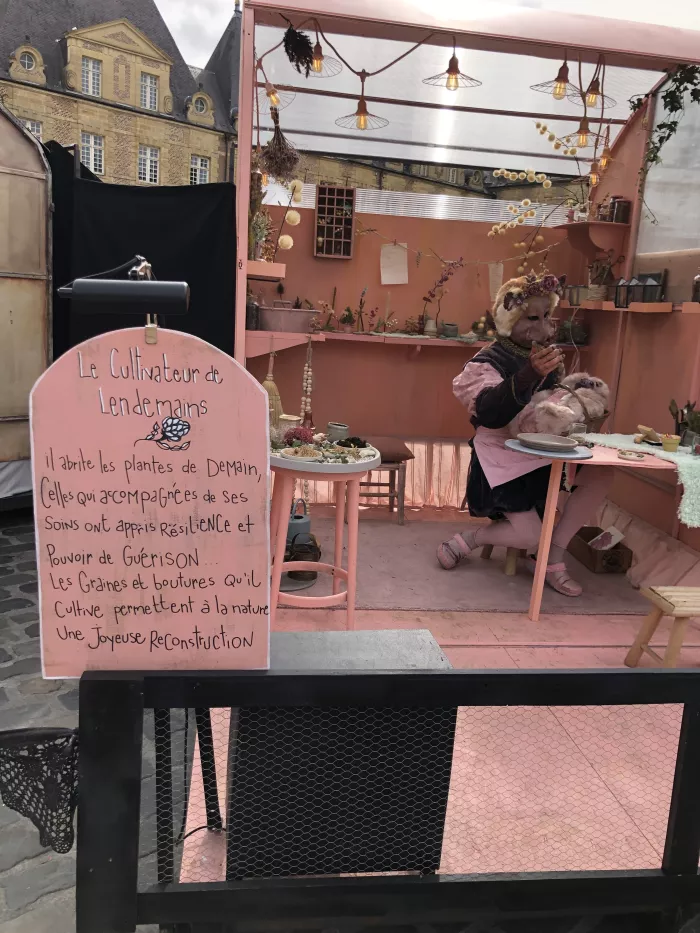 Le Cultivateur de
Lendemains
il abrite les plantes de Demain,
Celles qui accompagnées de ses
soins ont appris Résilience et
Pouvoir de Guérison...
Les Graines et boutures Qu'il
Cultive permettent à la nature
Une Joyeuse Reconstruction